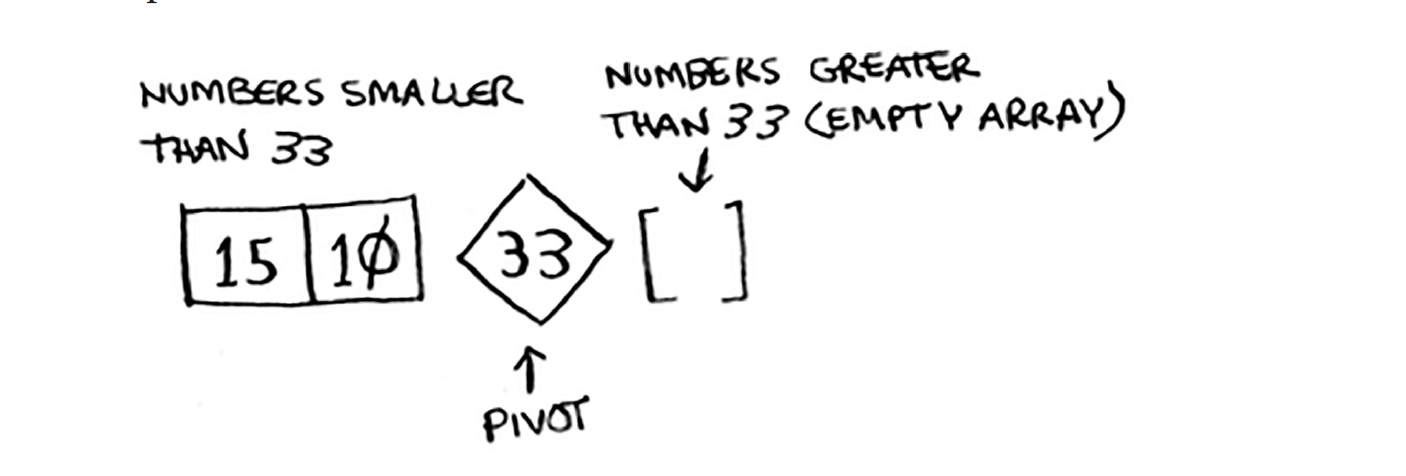 NUMBERS SMALLER
THAN 33
NUMBERS GREATER
THAN 33 (EMPTY ARRAY)
15 10
33
[ ]
PIVOT